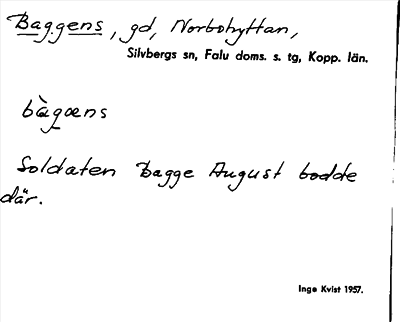 Baggens, gd, Norbohyttan,
Silvbergs sn, Falu doms. s. tg, Kopp. län.
bàgæns
Soldaten Bagge August bodde
där.
Inga Kvist 1957.